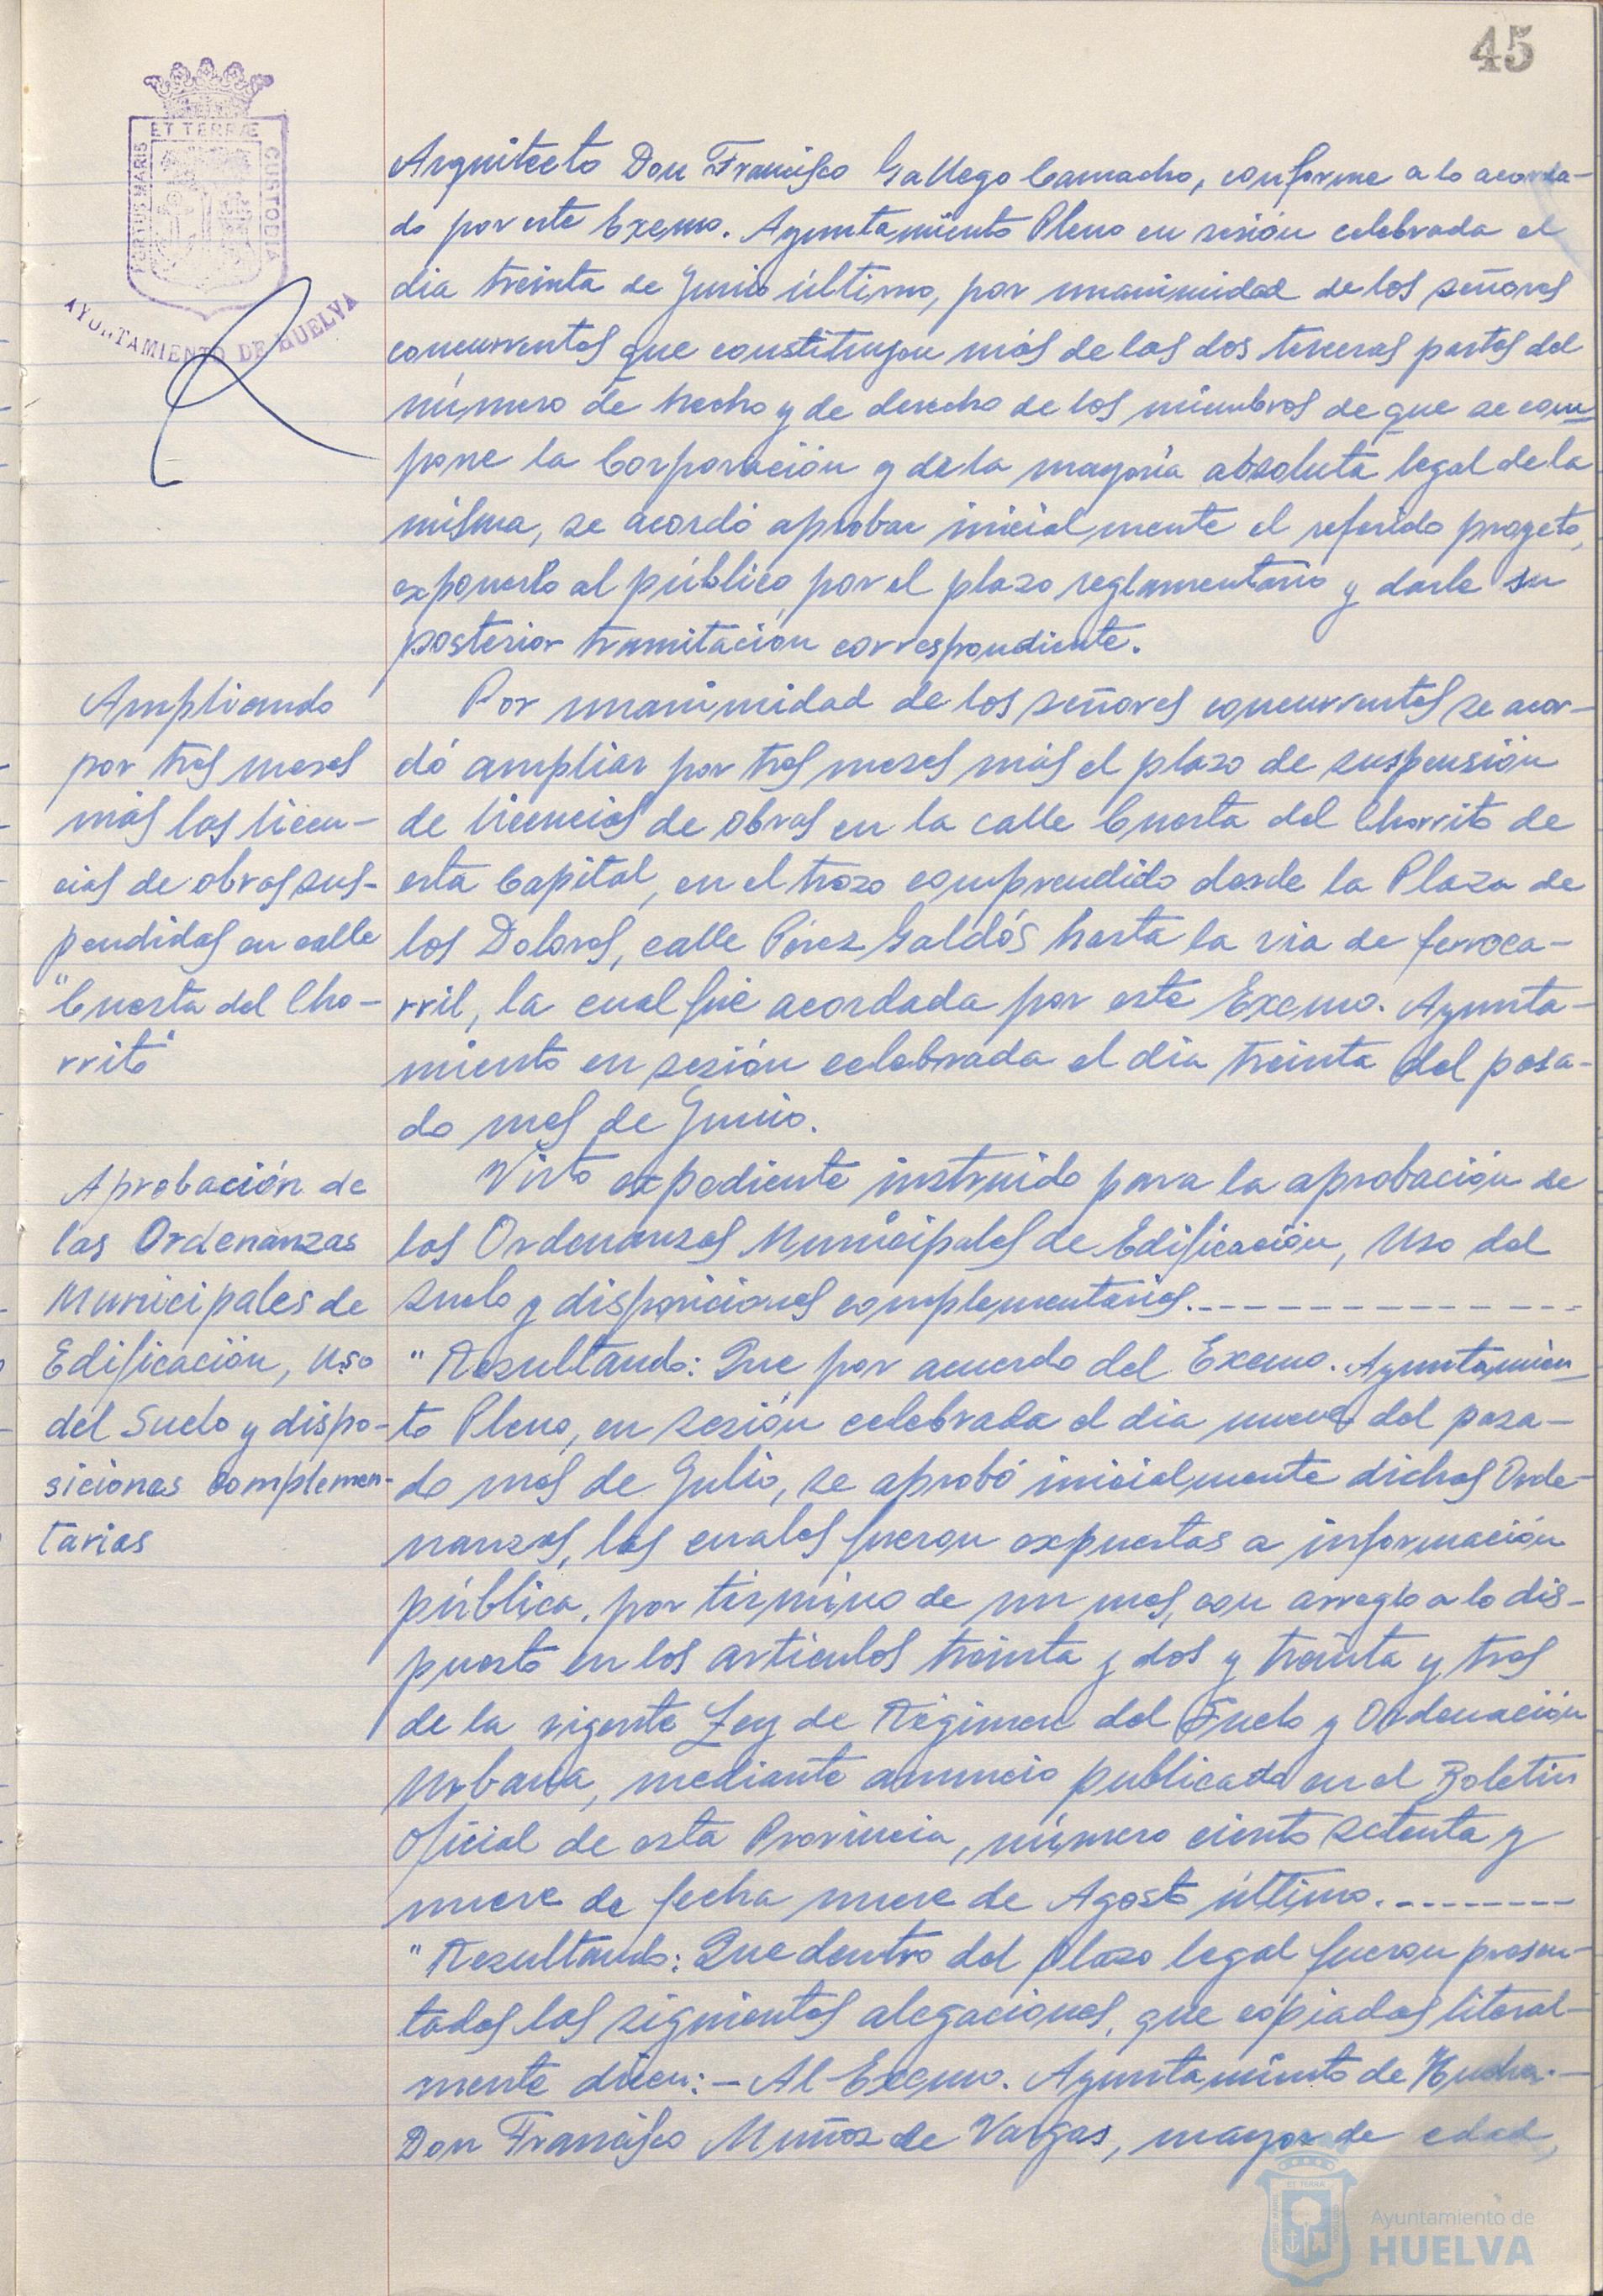 45
PORTUS MARIS ET TERRÆ CUSTODIA
AYUNTAMIENTO DE HUELVA
Arquitecto Don Francisco Gallego Camacho, conforme a lo acorda-
do por este Excmo. Ayuntamiento Pleno en sesión celebrada el
dia treinta de Junio último, por unanimidad de los señores
concurrentes que constituyen más de las dos terceras partes del
número de hecho y de derecho de los miembros de que se com-
pone la Corporación y de la mayoría absoluta legal de la
misma, se acordó aprobar inicialmente el referido proyeto,
exponerlo al público por el plazo reglamentario y darle su
posterior tramitación correspondiente.
Ampliando
por tres meses
más las licen-
cias de obras sus-
pendidas en calle
"Cuesta del Cho-
rrito"
Por unanimidad de los señores concurrentes se acor-
dó ampliar por tres meses más el plazo de suspensión
de licencias de obras en la calle Cuesta del Chorrito de
esta Capital, en el trozo comprendido desde la Plaza de
los Dolores, calle Pérez Galdós hasta la via de ferroca-
rril, la cual fué acordada por este Excmo. Ayunta-
miento en sesión celebrada el dia treinta del pasa-
do mes de Junio.
Aprobación de
las Ordenanzas
Municipales de
Edificación, Uso
del Suelo y dispo-
siciones complemen-
tarias
Visto expediente instruido para la aprobación de
las Ordenanzas Municipales de Edificación, Uso del
suelo y disposiciones complementarias.-------------
"Resultando: Que por acuerdo del Excmo. Ayuntamien-
to Pleno, en sesión celebrada el dia nueve del pasa-
do mes de Julio, se aprobó inicialmente dichas Orde-
nanzas, las cuales fueron expuestas a información
pública, por término de un mes, con arreglo a lo dis-
puesto en los articulos treinta y dos y treinta y tres
de la vigente Ley de Régimen del Suelo y Ordenación
Urbana, mediante anuncio publicado en el Boletin
Oficial de esta Provincia, número ciento setenta y
nueve de fecha nueve de Agosto último.--------
"Resultando: Que dentro del plazo legal fueron presen-
tadas las siguientes alegaciones, que copiadas literal-
mente dicen:- Al Excmo. Ayuntamiento de Huelva.-
Don Francisco Muñoz de Vargas, mayor de edad,
Ayuntamiento de
HUELVA